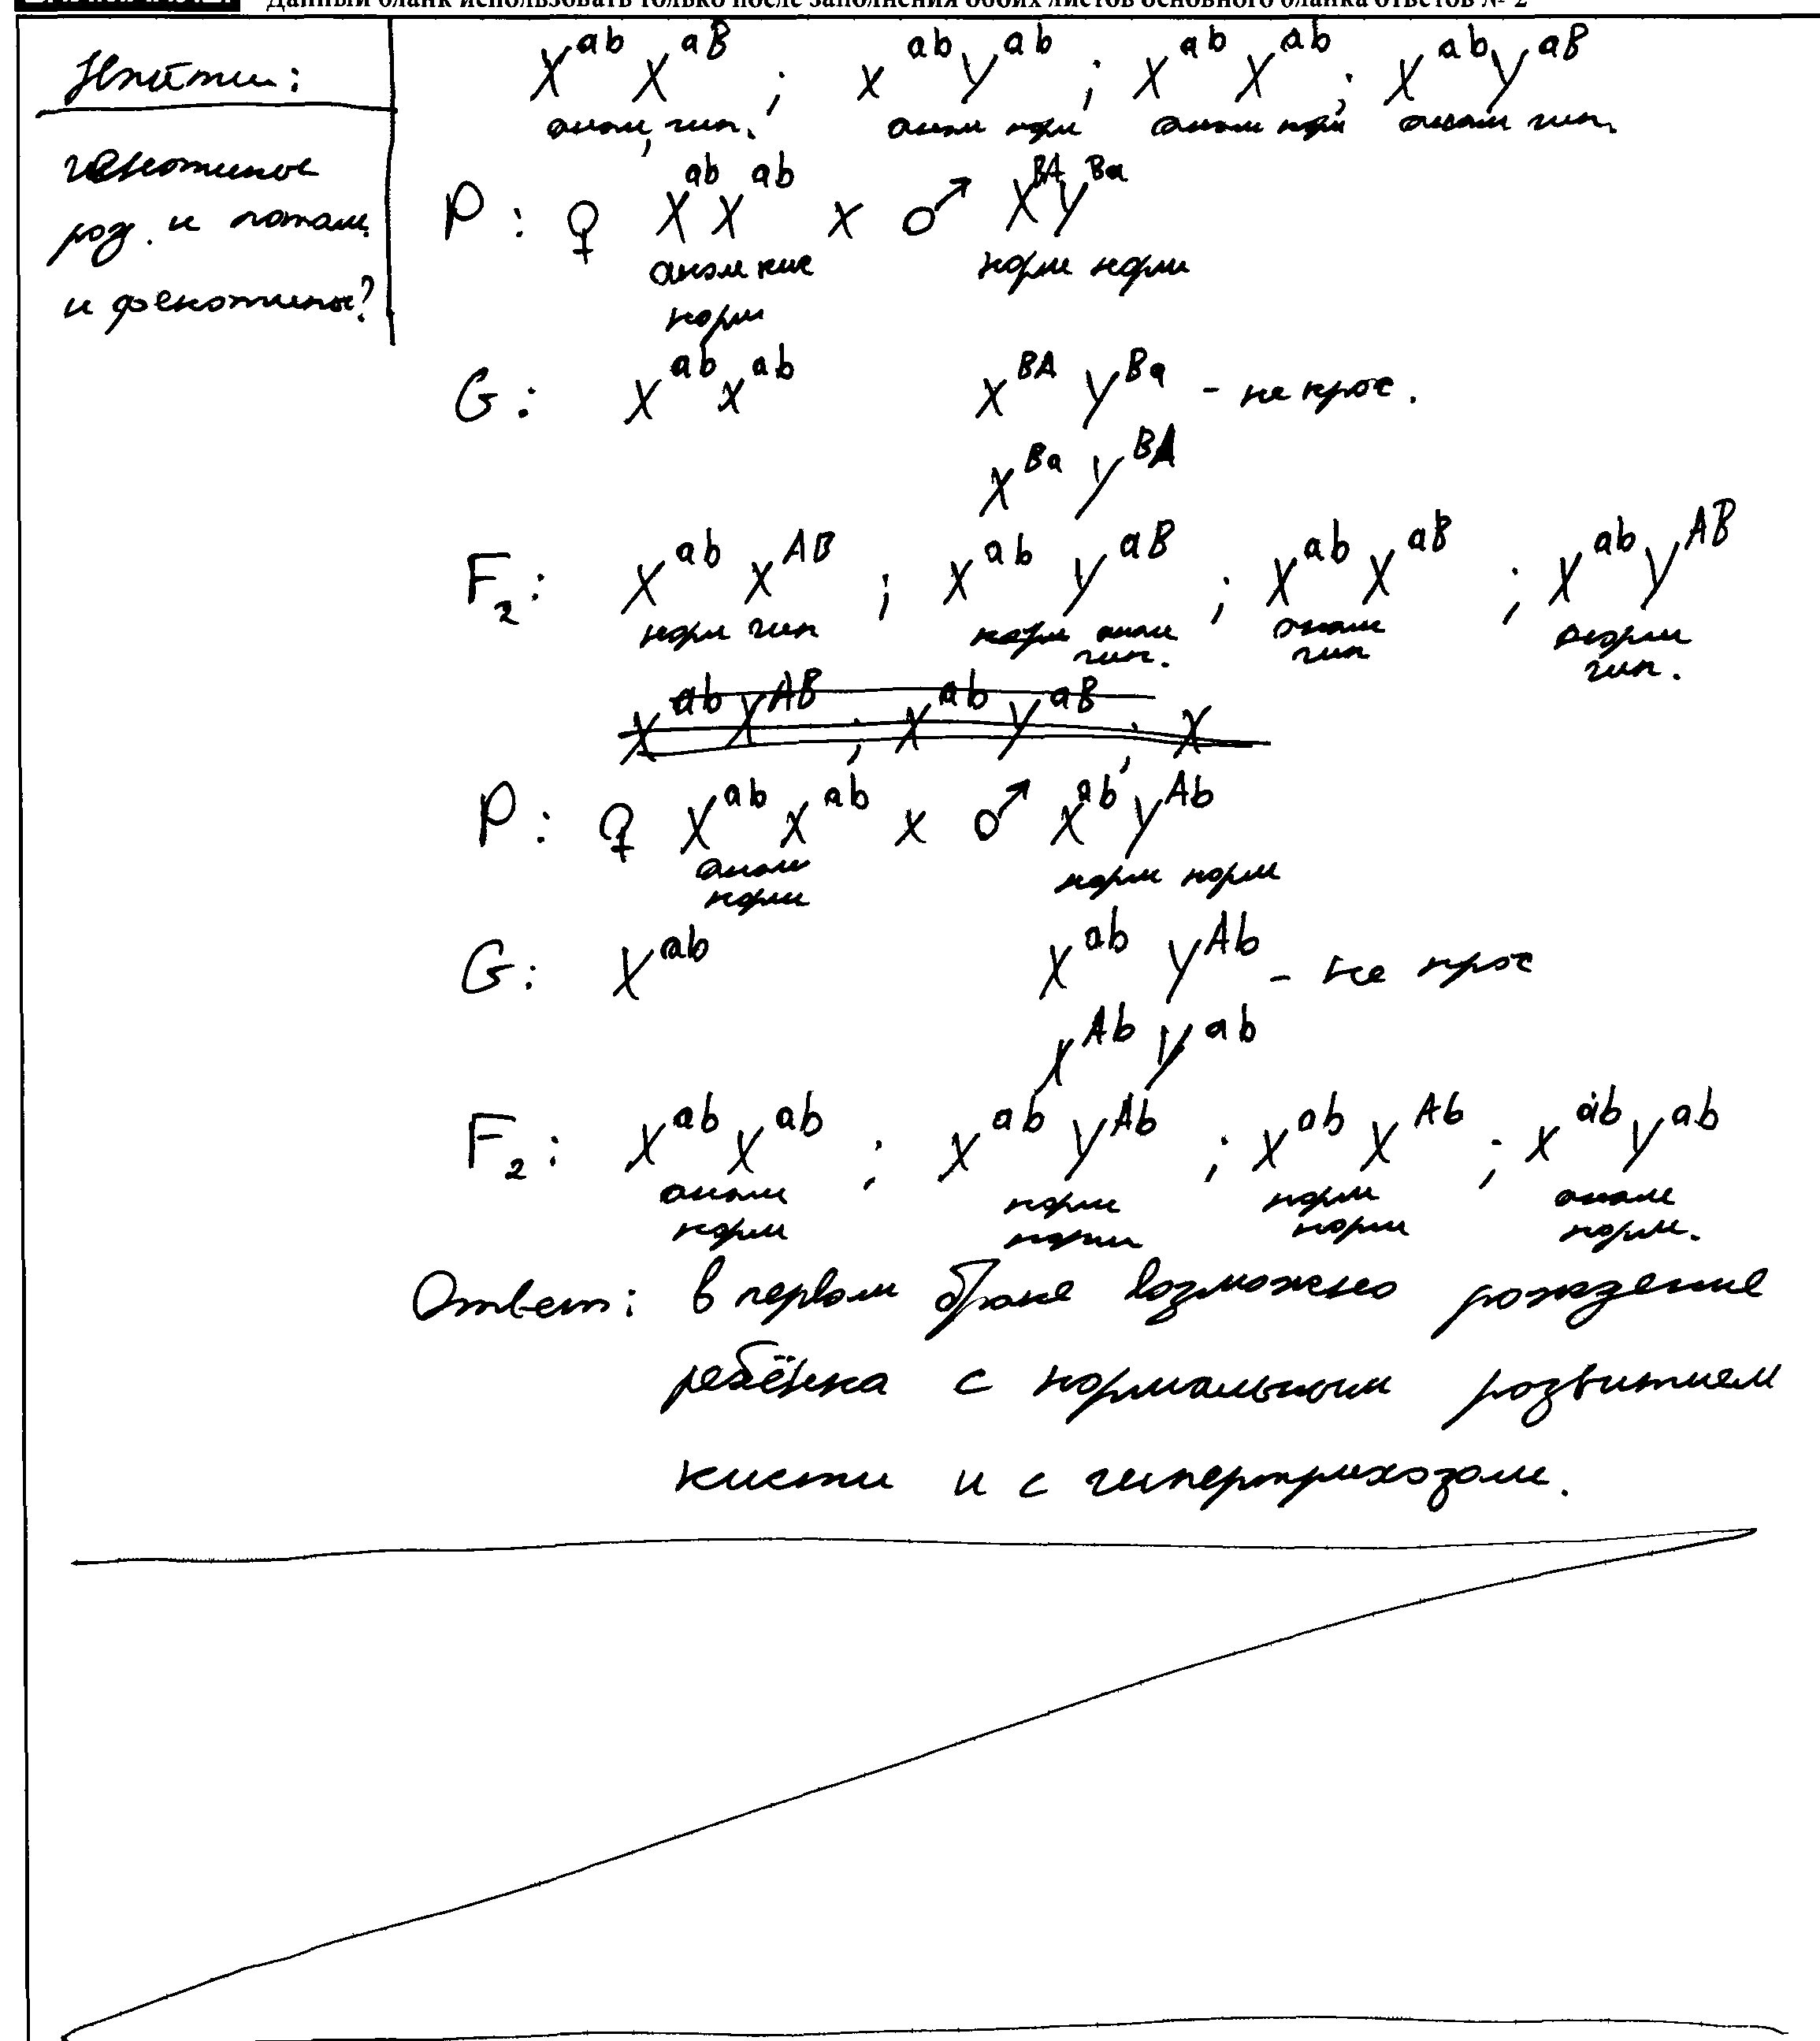 Данный бланк использовать только после заполнения обоих листов основного бланка ответов № 2
Найти:
генотипы
род. и потом.
и фенотипы?
X^ab X^aB ; X^ab Y^ab ; X^ab X^ab ; X^ab Y^aB
аном, гип. аном норм аном норм аном гип.
P: ♀ X^ab X^ab x ♂ X^BA Y^Ba
аном кис норм норм
норм
G: X^ab X^ab X^BA Y^Ba - не крос.
X^Ba Y^BA
F2: X^ab X^AB ; X^ab Y^aB ; X^ab X^aB ; X^ab Y^AB
норм гип норм аном аном норм
гип. гип гип.
X^ab X^AB ; X^ab Y^aB ; X
P: ♀ X^ab X^ab x ♂ X^ab Y^Ab
аном норм норм
норм
G: X^ab X^ab Y^Ab - не крос
X^Ab Y^ab
F2: X^ab X^ab ; X^ab Y^Ab ; X^ab X^Ab ; X^ab Y^ab
аном норм норм аном
норм норм норм норм.
Ответ: в первом браке возможно рождение
ребёнка с нормальным розвитием
кисти и с гипертрихозом.